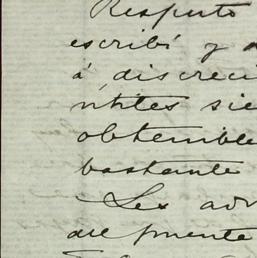 Respecto
escribí y
á discreci
ntites sie
obtenible
bastante
Les adv
del puente